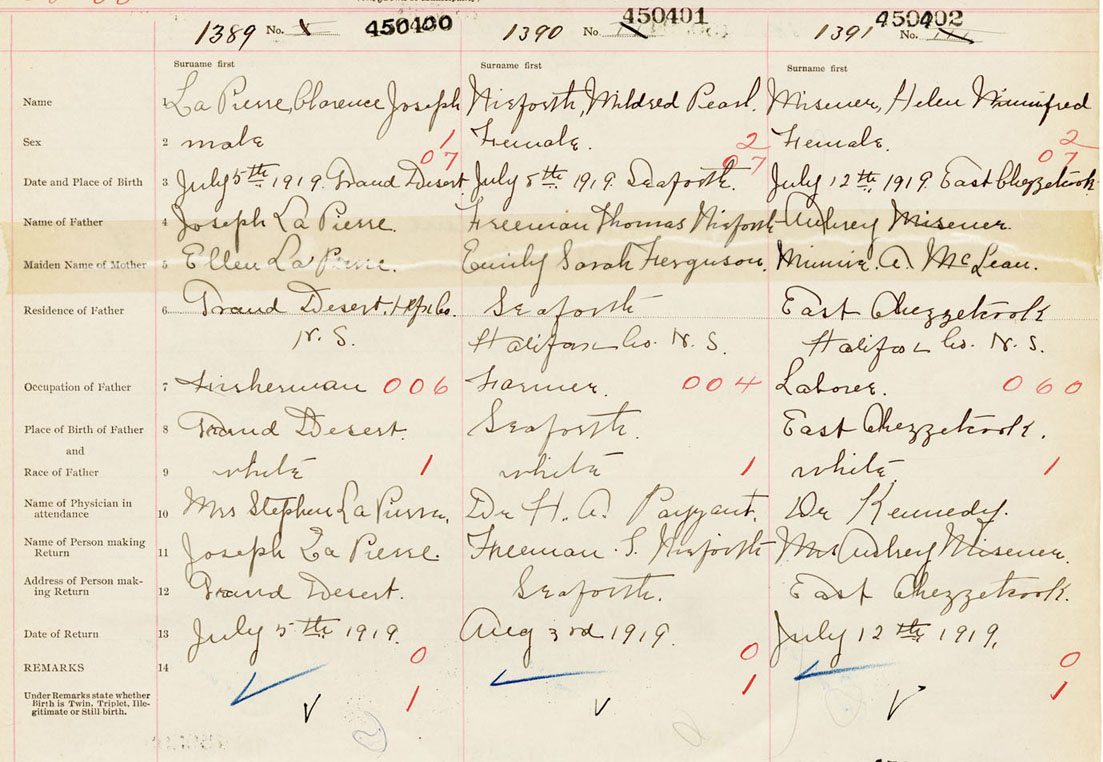 1389 No. 450400 1390 No 450401 1391 No. 450402
Surname first Surname first Surname first
Name 1 La Pierre, Clarence Joseph Nieforth, Mildred Pearl. Misener, Helen Winnifred
Sex 2 male 1 Female. 2 Female. 2
07 07 07
Date and Place of Birth 3 July 5th 1919 Grand Desert July 8th 1919 Seaforth. July 12th 1919 East Chezzetcook
Name of Father 4 Joseph La Pierre. Freeman Thomas Nieforth Aubrey Misener.
Maiden Name of Mother 5 Ellen La Pierre. Emily Sarah Ferguson. Minnie. A. McLean.
Residence of Father 6 Grand Desert, Hfx Co. Seaforth East Chezzetcook
N.S. Halifax Co. N.S. Halifax Co. N.S.
Occupation of Father 7 Fisherman 006 Farmer. 004 Laborer. 060
Place of Birth of Father 8 Grand Desert. Seaforth. East Chezzetcook.
and
Race of Father 9 white 1 white 1 white 1
Name of Physician in
attendance 10 Mrs Stephen La Pierre. Dr H. A. Payzant. Dr Kennedy.
Name of Person making
Return 11 Joseph La Pierre. Freeman . T. Nieforth Mrs Aubrey Misener.
Address of Person mak-
ing Return 12 Grand Desert. Seaforth. East Chezzetcook.
Date of Return 13 July 5th 1919. Aug 3rd 1919. July 12th 1919.
0 0 0
REMARKS 14
Under Remarks state whether
Birth is Twin, Triplet, Ille- 1 1 1
gitimate or Still birth.